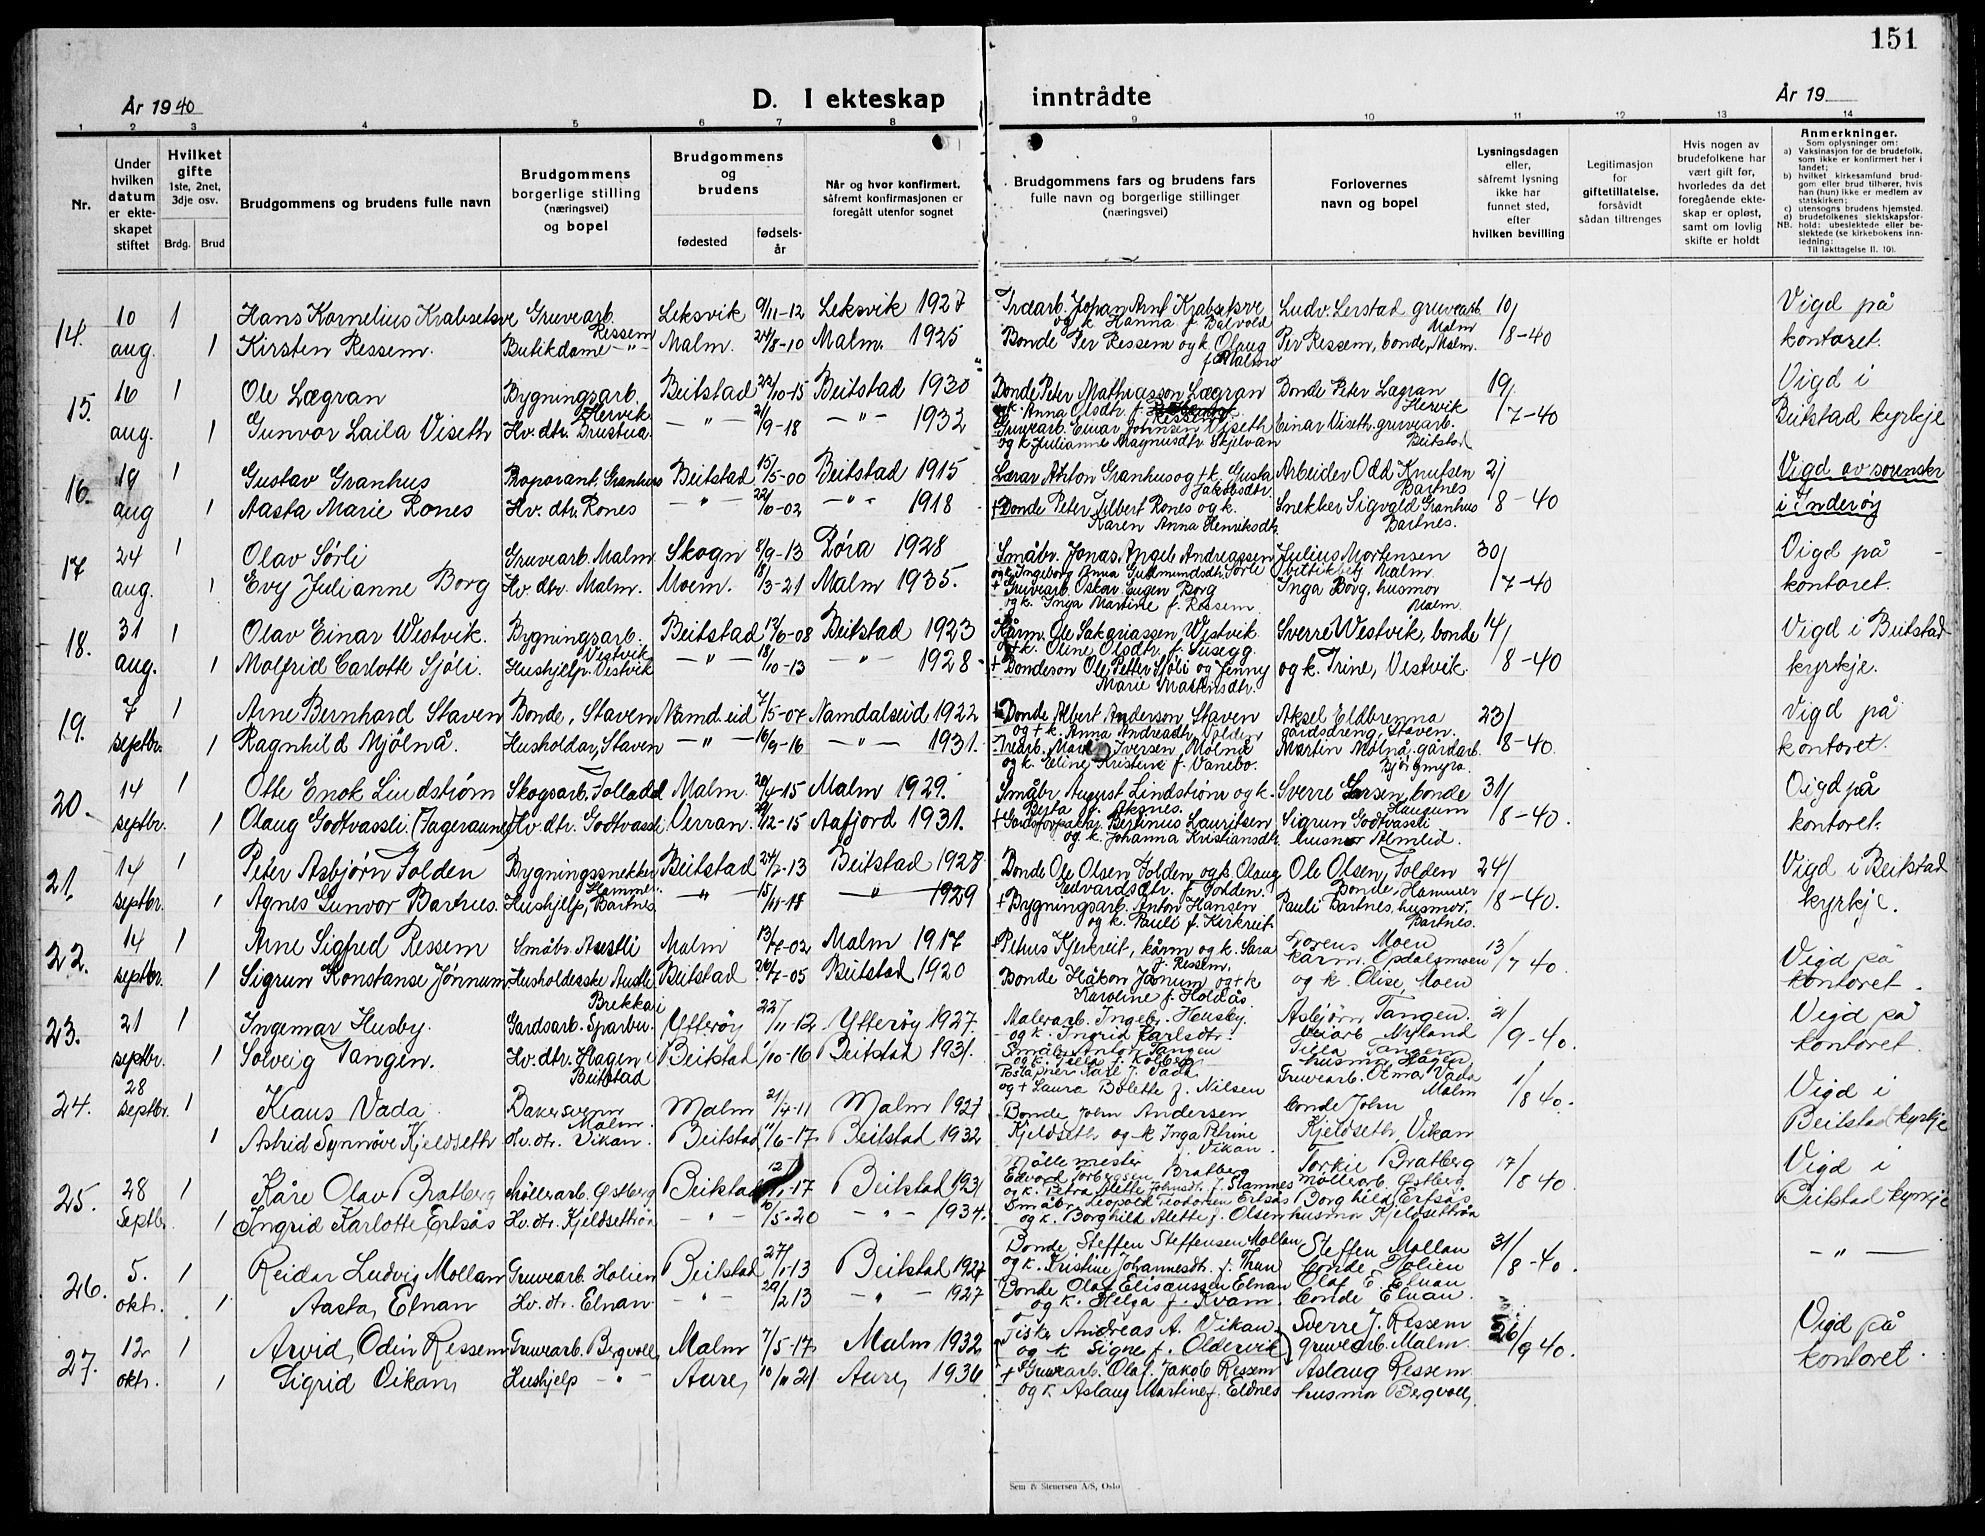 151
År 1940
D. I ekteskap inntrådte
År 19
1 2 3 4 5 6 7 8 9 10 11 12 13 14
Nr.
Under hvilken datum er ekteskapet stiftet
Hvilket gifte 1ste, 2net, 3dje osv.
Brdg. Brud
Brudgommens og brudens fulle navn
Brudgommens borgerlige stilling (næringsvei) og bopel
Brudgommens og brudens
fødested
fødselsår
Når og hvor konfirmert, såfremt konfirmasjonen er foregått utenfor sognet
Brudgommens fars og brudens fars fulle navn og borgerlige stillinger (næringsvei)
Forlovernes navn og bopel
Lysningsdagen eller, såfremt lysning ikke har funnet sted, efter hvilken bevilling
Legitimasjon for giftetillatelse, forsåvidt sådan tiltrenges
Hvis nogen av brudefolkene har vært gift før, hvorledes da det foregående ekteskap er opløst, samt om lovlig skifte er holdt
Anmerkninger.
Som oplysninger om:
a) Vaksinasjon for de brudefolk, som ikke er konfirmert her i landet;
b) hvilket kirkesamfund brudgom eller brud tilhører, hvis han (hun) ikke er medlem av statskirken;
c) utensogns brudens hjemsted.
d) brudefolkenes slektskapsforhold: ubeslektede eller beslektede (se kirkebokens innledning:
NB.
Til iakttagelse II. 10).
14. 10 1 Hans Kornelius Krabsetsve Gruvearb. Ressem Leksvik 9/11-12 Leksvik 1927 Trearb. Johan Arnt Krabsetsve og k. Hanna f. Balvold Ludv. Lerstad gruvearb. Malm 10/ Vigd på
aug. 1 Kirsten Ressem. Butikdame -"- Malm. 24/8-10 Malm. 1925 Bonde Per Ressem og k. Olaug f. Malmo Per Ressem, bonde, Malm. 8-40 kontoret.
15. 16 1 Ole Lægran Bygningsarb. Hervik Beitstad 22/10-15 Beitstad 1930 Bonde Peter Mathiasson Lægran og k. Anna Olsdtr. f. Ressem Bonde Peter Lægran Hervik 19/ Vigd i
aug. 1 Gunvor Laila Viseth Hv. dtr. Brustua. -"- 21/9-18 -"- 1932 Gruvearb. Einar Johnsen Viseth og k. Julianne Magnusdtr Skjelvan Einar Viseth, gruvearb. Beitstad 7-40 Beitstad kyrkje
16. 19 1 Gustav Granhus Granhus Beitstad 15/5-00 Beitstad 1915 Anton Granhus og +k. Gusta Jakobsdtr. Arbeider Odd Knutsen Bartnes 2/ Vigd av sorenskr
aug 1 Aasta Marie Rones Hv. dtr. Rones -"- 22/6-02 -"- 1918 +Bonde Peter Filbert Rones og k. Karen Anna Henriksdtr. Snekker Sigvald Granhus Bartnes. 8-40 i Inderøy
17 24 1 Olav Sørli Gruvearb. Malm Skogn 8/9-13 Røra 1928 Småbr. Jonas Angel Andreassen og k. Ingeborg Anna Gudmundsdtr. Sørli Julius Mortensen Malm 30/ Vigd på
aug. 1 Evy Julianne Borg Hv. dtr. Malm. Moem. 18/3-21 Malm 1935. + Gruvearb. Oskar Eugen Borg og k. Inga Martine f. Ressem Inga Borg, husmor Malm. 7-40 kontoret.
18. 31 1 Olav Einar Westvik. Bygningsarb. Vestvik Beitstad 12/6-08 Beitstad 1923 Kårm. Ole Sakariassen Westvik +k. Oline Olsdtr. f. Susegg. Sverre Westvik, bonde 14/ Vigd i Beitstad
aug. 1 Molfrid Carlotte Sjøli. Hushjelp. Vestvik -"- 18/10-13 -"- 1928 + Bondesøn Ole Petter Sjøli og Jenny Marie Martensdtr. og k. Trine, Vestvik. 8-40 kyrkje.
19. 7 1 Arne Bernhard Staven Bonde, Staven Namd.eid 7/5-07 Namdalseid 1922 +Bonde Albert Anderson Staven og +k. Anna Andreadtr. Volden Aksel Eldbrenna gårdsdreng, Staven. 23/ Vigd på
septbr. 1 Ragnhild Mjølnå. Husholdar, Staven -"- 16/9-16 -"- 1931. Trearb. Iversen Mølnå og k. Eline Kristine f. Vanebo. Martin Mølnå, gårdarb. Bjørgmyra. 8-40. kontoret.
20. 14 1 Otte Enok Lindstrøm Skogsarb. Folladal Malm. 20/4-15 Malm 1929. Småbr. August Lindstrøm og k. Berta f. Aksnes. Sverre Larsen, bonde Haugum 31/ Vigd på
septbr. 1 Olaug Godtvassli. (Fageraune) Hv. dtr. Godtvassli Verran. 29/12-15 Aafjord 1931. + Bertinus Lauritsen og k. Johanna Kristiansdtr. Sigrun Godtvassli husmor Almlid. 8-40. kontoret.
21. 14 1 Peter Asbjørn Folden Bygningssnekker Hammer Beitstad 24/2-13 Beitstad 1928 Bonde Ole Olsen Folden og k. Olaug Edvardsdtr. f. Folden. Ole Olsen Folden Bonde, Hammer 24/ Vigd i Beitstad
septbr. 1 Agnes Gunvor Bartnes. Hushjelp, Bartnes. -"- 15/11-18 -"- 1929 + Bygningsarb. Anton Hansen og k. Pauli f. Kirkreit Pauli Bartnes, husmor, Bartnes. 8-40. kyrkje.
22. 14 1 Arne Sigfred Ressem Småbr. Austli Malm 13/7-02 Malm 1917 + Petrus Kjerkreit, kårm og k. Sara f. Ressem. Lorens Moen kårm. Opdalsmoen 13/ Vigd på
septbr. 1 Sigrun Konstanse Jønnum Husholderske Austli Beitstad 26/7-05 Beitstad 1920 Bonde Håkon Jønnum og +k Karoline f. Holdås og k. Olise, Moen 7 40. kontoret.
23. 21 1 Ingemar Husby. Gardsarb. Sparbu. Ytterøy 22/11-12 Ytterøy 1927. Malerarb. Ingebr. Husby. og k. Ingrid Karlsdtr. Asbjørn Tangen. Veiarb Nyland 2/ Vigd på
septbr. 1 Solveig Tangen. Hv. dtr. Hagen i Beitstad Beitstad 1/10-16 Beitstad 1931. Småbr. Anton Tangen og k. f. Kolberg Tilla Tangen husmor Hagen 9-40. kontoret.
24. 28 septbr. 1 Klaus Vada. Bakersvenn Malm. Malm 21/4-11 Malm 1927 Vada og + Laura Bolette f. Nilsen Gruvearb. Olmar Vada Malm 1/ Vigd i
1 Astrid Synnøve Kjeldseth Hv. dtr. Vikan. Beitstad 11/6-17. Beitstad 1932 Bonde John Andersen Kjeldseth og k Inga Petrine f. Vikan. Bonde John Kjeldseth, Vikan 8 40. Beitstad kyrkje
25. 28 1 Kåre Olav Bratberg Møllerarb. Østberg Beitstad 12/1-17 Beitstad 1931 Møllemester Edvard Torbergsen Bratberg og k. Petra Alette Johnsdtr. f. Stamnes Torkil Bratberg møllerarb. Østberg 17/ Vigd i
Septbr. 1 Ingrid Karlotte Ertsås Hv. dtr. Kjeldsettrøa -"- 10/5-20 -"- 1934. Småbr. Leopold Teodorsen Ertsås og k. Borghild Alette f. Olsen Borghild Ertsås husmor Kjeldsettrøa 8 40. Beitstad kyrkje
26. 5. 1 Reidar Ludvig Mollan Gruvearb. Holien Beitstad 27/1-13 Beitstad 1927 Bonde Steffen Steffensen Mollan og k. Kristine Johannesdtr. f. Thun Steffen Mollan bonde, Folien 31/ -"-
oktr. 1 Aasta Elnan Hv. dtr. Elnan -"- 29/2 13 -"- 1927 Bonde Olaf Elisæussen Elnan og k. Helga f. Kvam. Olaf E. Elnan bonde Elnan. 8-40.
27. 12 1 Arvid Odin Ressem Gruvearb. Bergvoll, Malm 7/5-17. Malm 1932 Fisker Andreas A. Vikan og k Signe f. Oldervik Sverre J. Ressem gruvearb. Malm. 26/ Vigd på
oktr. 1 Sigrid Vikan, Hushjelp -"- Aure, 10/11 21 Aure, 1936 + Gruvearb. Olaf Jakob Ressem og k. Aslaug Martine f. Eldnes Aslaug Ressem husmor Bergvoll, 9 40. kontoret.
Sem & Stenersen A/S, Oslo